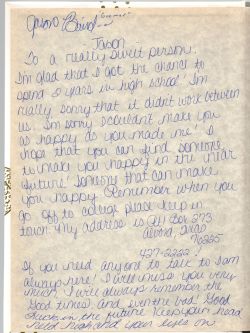 Jason
Jason
To a really sweet person.
I'm glad that I got the chance to
spend 3 years in high school! I'm
really sorry that it didn't work between
us. I'm sorry I couldn't make you
as happy as you made me! I
hope that you can find someone
to make you happy in the near
future. Someone that can make
you happy. Remember when you
go off to college please keep in
touch. My address is Box 273
Alvord, Texas
76225
427-2222!
If you need anyone to talk to I am
always here! I will miss you very
much! I will always remember the
Good times! and even the bad! Good
luck in the future. Keep your head
held high and your eyes on